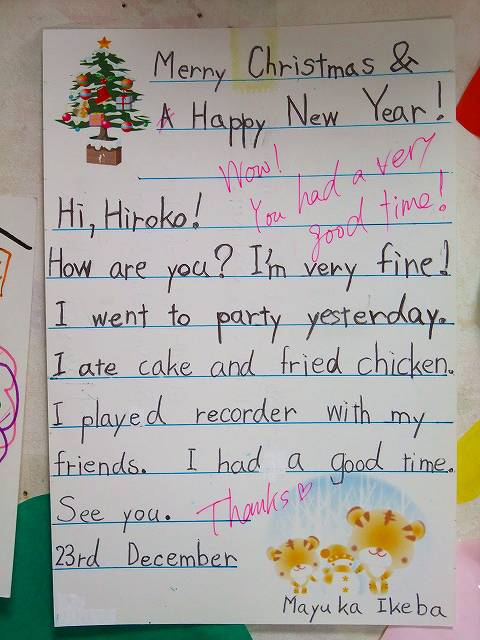 Merry Christmas &
A Happy New Year!
Wow!
You had a very
good time!
Hi, Hiroko!
How are you? I'm very fine!
I went to party yesterday.
I ate cake and fried chicken.
I played recorder with my
friends. I had a good time.
See you. Thanks♡
23rd December
Mayuka Ikeba